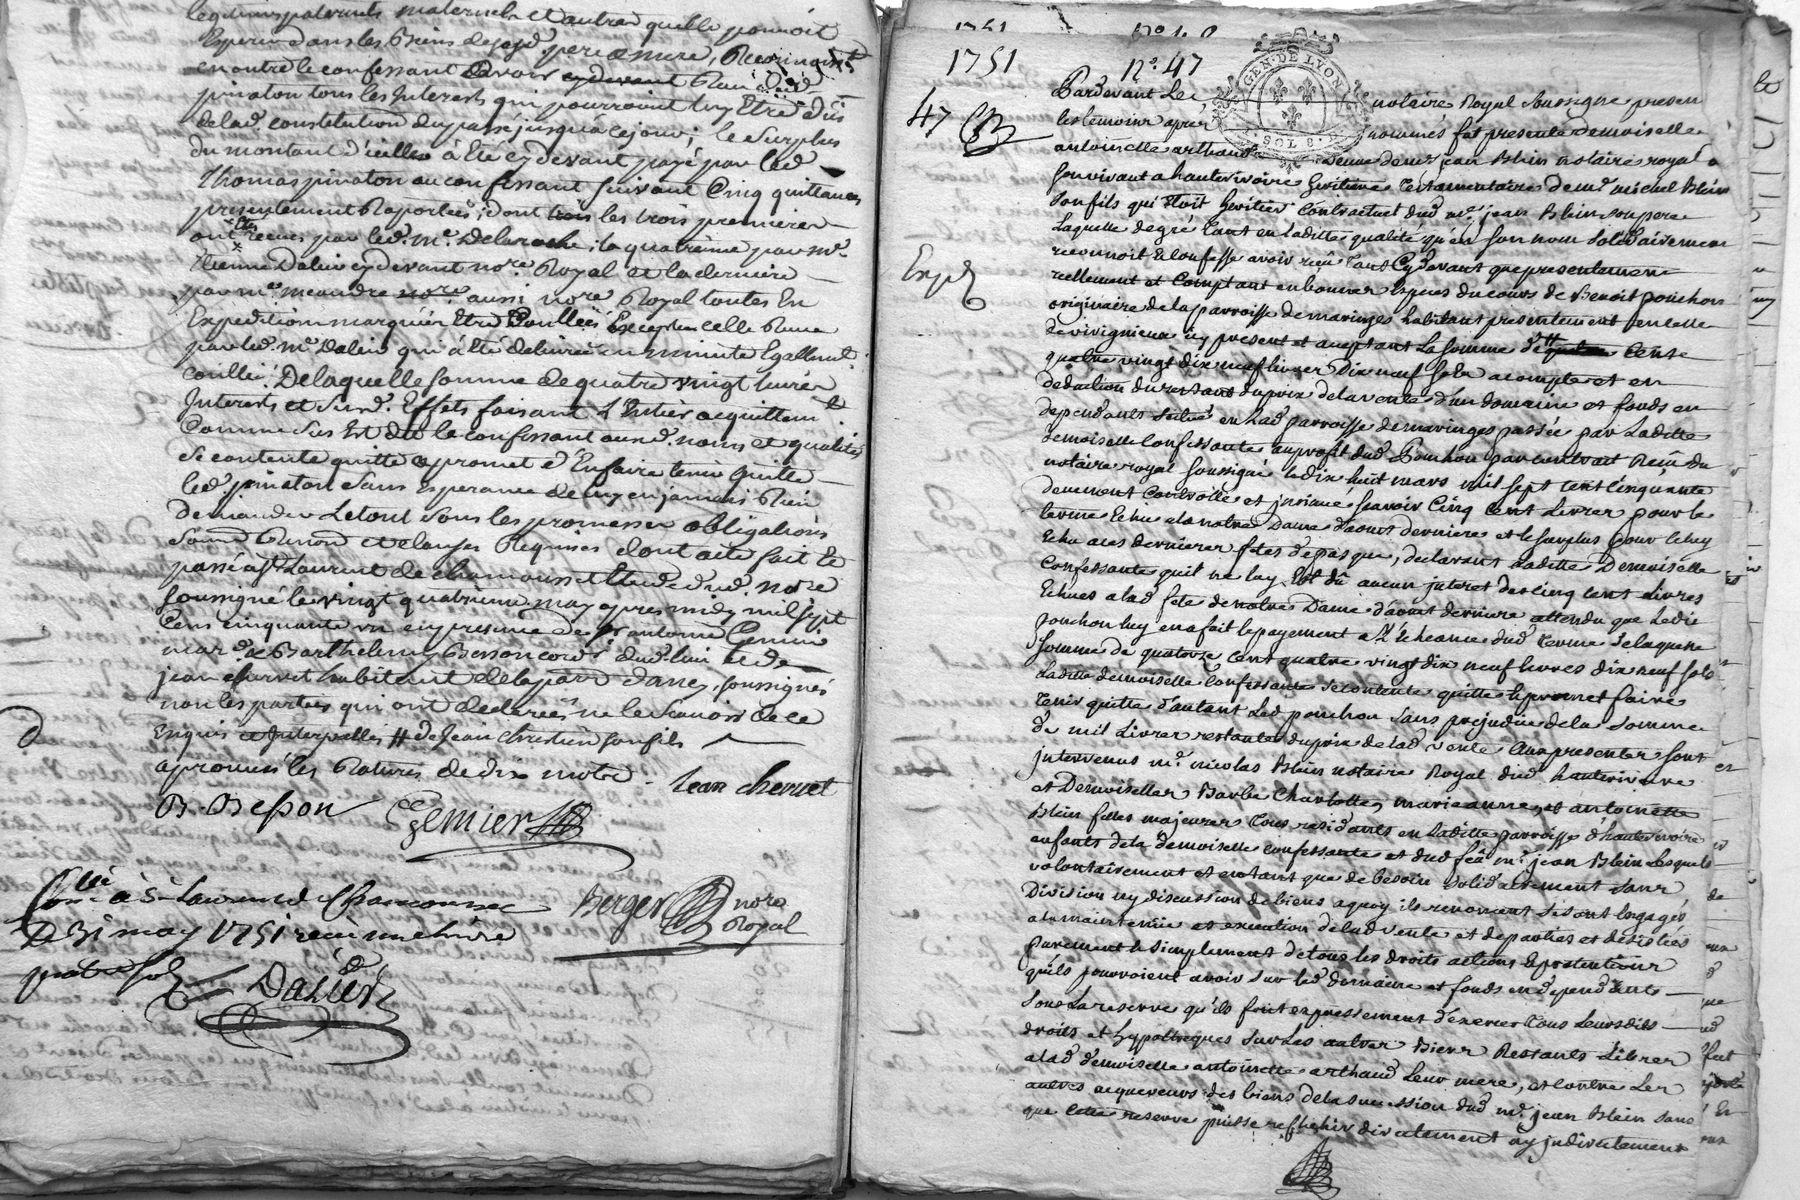 legitimes paternels maternels et autres quelle pouvoit
Esperer dans les Biens desesd. pere & mere, Reconnoiss.t
en outre le confessant avoir cydevant Reçu dud.
pinaton tous les Interests qui pourroient luy Etre dûs
delad. constitution du passé jusqu'a ce jour; le surplus
du montant d'icelle a été cydevant payé par led.
Thomas pinaton au confessant suivant Cinq quittances
presentement Raportées; dont les trois premieres
ont été recues par led. Me. Delaroche; la quatrieme par Me.
Etienne Dalier cydevant nore. Royal et la derniere
par Me. meandre nore aussi nore Royal toutes En
Expedition marquées Etre Conllées Exceptée celle Recue
par led. Me Dalier qui a été delivrée en minute Egallemt.
conllée. De laquelle somme de quatre vingt livres
Interests et susd. Effets faisant l'Entier acquittemt.
Comme sus Est dit le confessant auxd. noms et qualités
se contente quitte & promet d'En faire tenir quitte
led. pinaton sans Esperance de luy en jamais Rien
demander Le tout sous les promesses obligations
soumd. Renond. et clauses Requises dont acte fait &
passé a St Laurent de chamousset Etude dud. nore
soussigné le vingt quatrieme may apres midy mil sept
Cens cinquante un en presence de Sr antoine Gemier
mard. & Barthelemy Besson cord. dud. lieu & de
jean chervet habitant de la parr. d'ancy, soussignés
non les parties qui ont declarées ne le scavoir de ce
Enquis et Interpellés # de Jean chretien son fils
aprouvé les Ratures de dix mots
Jean chervet
B. Besson Gemier
Conllé a St Laurend Chamousset Berger nore
Royal
Le 31 may 1751 recu une livre
quatre sols
Dalier
1751 No. 48
1751 No. 47
GEN. DE LYON
SOL 8 D
47
Expd
Pardevant Le notaire Royal soussigné present
les temoins apres nommés fut presente demoiselle
antoinette arthaud veuve de me jean Blein notaire royal a
son vivant a hauterivoire heritiere Testamentaire de me michel Blein
son fils qui etoit heritier Contractuel dud me. jean Blein son pere
Laquelle de gré tant en laditte qualité qu'en son nom solidairement
reconnoit & confesse avoir reçu Tant Cydevant que presentement
reellement et Comptant en bonnes Especes du cours de Benoit ponchon
originaire de la parroisse de maringes habitant presentement en celle
de virignieux icy present et aceptant La somme de Cents
quatre vingt dix neuf livres Dix neuf sols acompte et en
deduction du restant du prix de la vente d'un domaine et fonds en
dependants Situé en lad parroisse de maringes passée par Laditte
demoiselle Confessante au profit dud Ponchon par contrait Reçu du
notaire royal soussigné le dix huit mars mil sept cent cinquante
deuement Controllé et insinué sçavoir Cinq Cent Livres pour le
terme Echu a la notre Dame d'aoust derniere et le surplus pour celuy
Echu aces dernieres fetes de pasques, declarant Laditte Demoiselle
Confessante qu'il ne luy Est dû aucun interet des Cinq Cent Livres
Echues a lad fete de notre Dame d'aoust derniere attendu que Ledit
ponchon luy en a fait le payement a l'Echeance dud Terme De laquelle
somme de quatorze cent quatre vingt dix neuf livres dix neuf sols
Laditte demoiselle Confessante se contente quitte & promet faire
Tenir quitte d'autant Led ponchon sans prejudice de la somme
de mil Livres restante du prix de lad vente Aux presentes sont
intervenus me. nicolas Blein notaire Royal dud hauterivoire
et Demoiselles Barbe Charlotte, marieanne, et antoinette
Blein filles majeures Tous residants en Laditte parroisse d'hauterivoire
enfants de la demoiselle confessante et dud feu me. jean Blein Lesquels
volontairement et entant que de besoin solidairement sans
Division ny discussion de biens a quoy ils renoncent se sont Engagés
a la maintenüe et execution de lad vente et departies et desistées
purement & simplement de tous les droits actions & pretentions
qu'ils pourroient avoir sur led domaine et fonds en dependants
sous La reserve qu'ils font expressement d'exercer Tous Leursdits
droits et hypotheques sur Les autres Biens Restants Libres
a lad demoiselle antoinette arthaud Leur mere, et contre Les
autres acquereurs des biens de la succession dud me. jean Blein sans
que cette reserve puisse reflechir directement ny indirectement